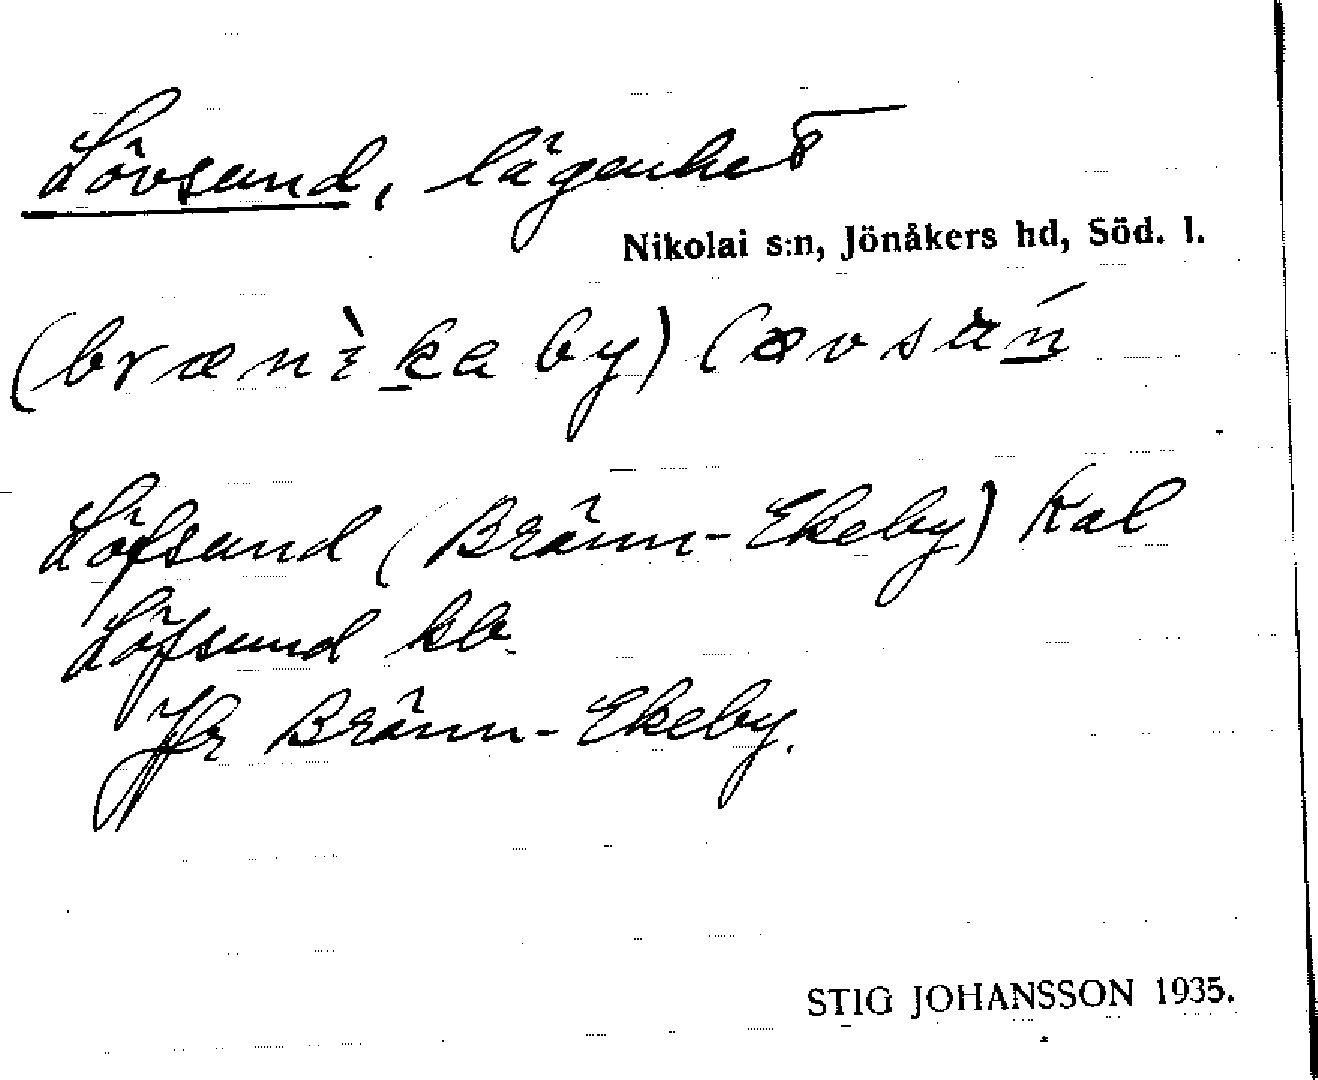 Lövsund, lägenhet
Nikolai s:n, Jönåkers hd, Söd. l.
(bræn by)
Löfsund (Bränn-Ekeby) Kal
Löfsund kb.
Jfr Bränn-Ekeby.
STIG JOHANSSON 1935.